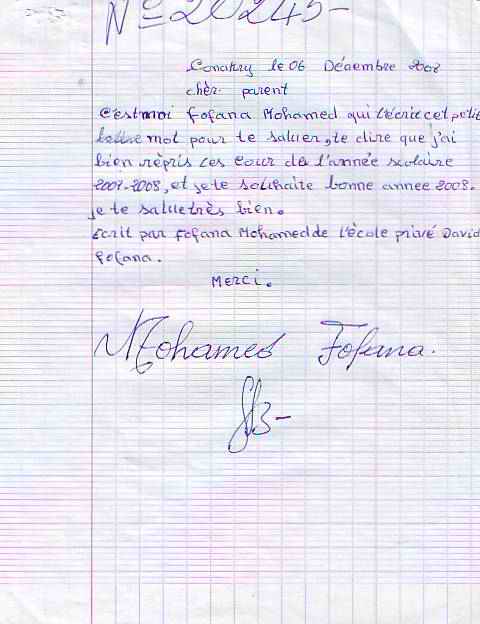 N° 20245-
Conakry le 06 Décembre 2008
chèr parent
C'est moi Fofana Mohamed qui t'écrie cet petit
lettre mot pour te saluer, te dire que j'ai
bien répris les cour de l'année scolaire
2007-2008, et je te souhaite bonne annee 2008.
je te salue très bien.
écrit par Fofana Mohamed de l'école privé David
Fofana.
Merci.
Mohamed Fofana.